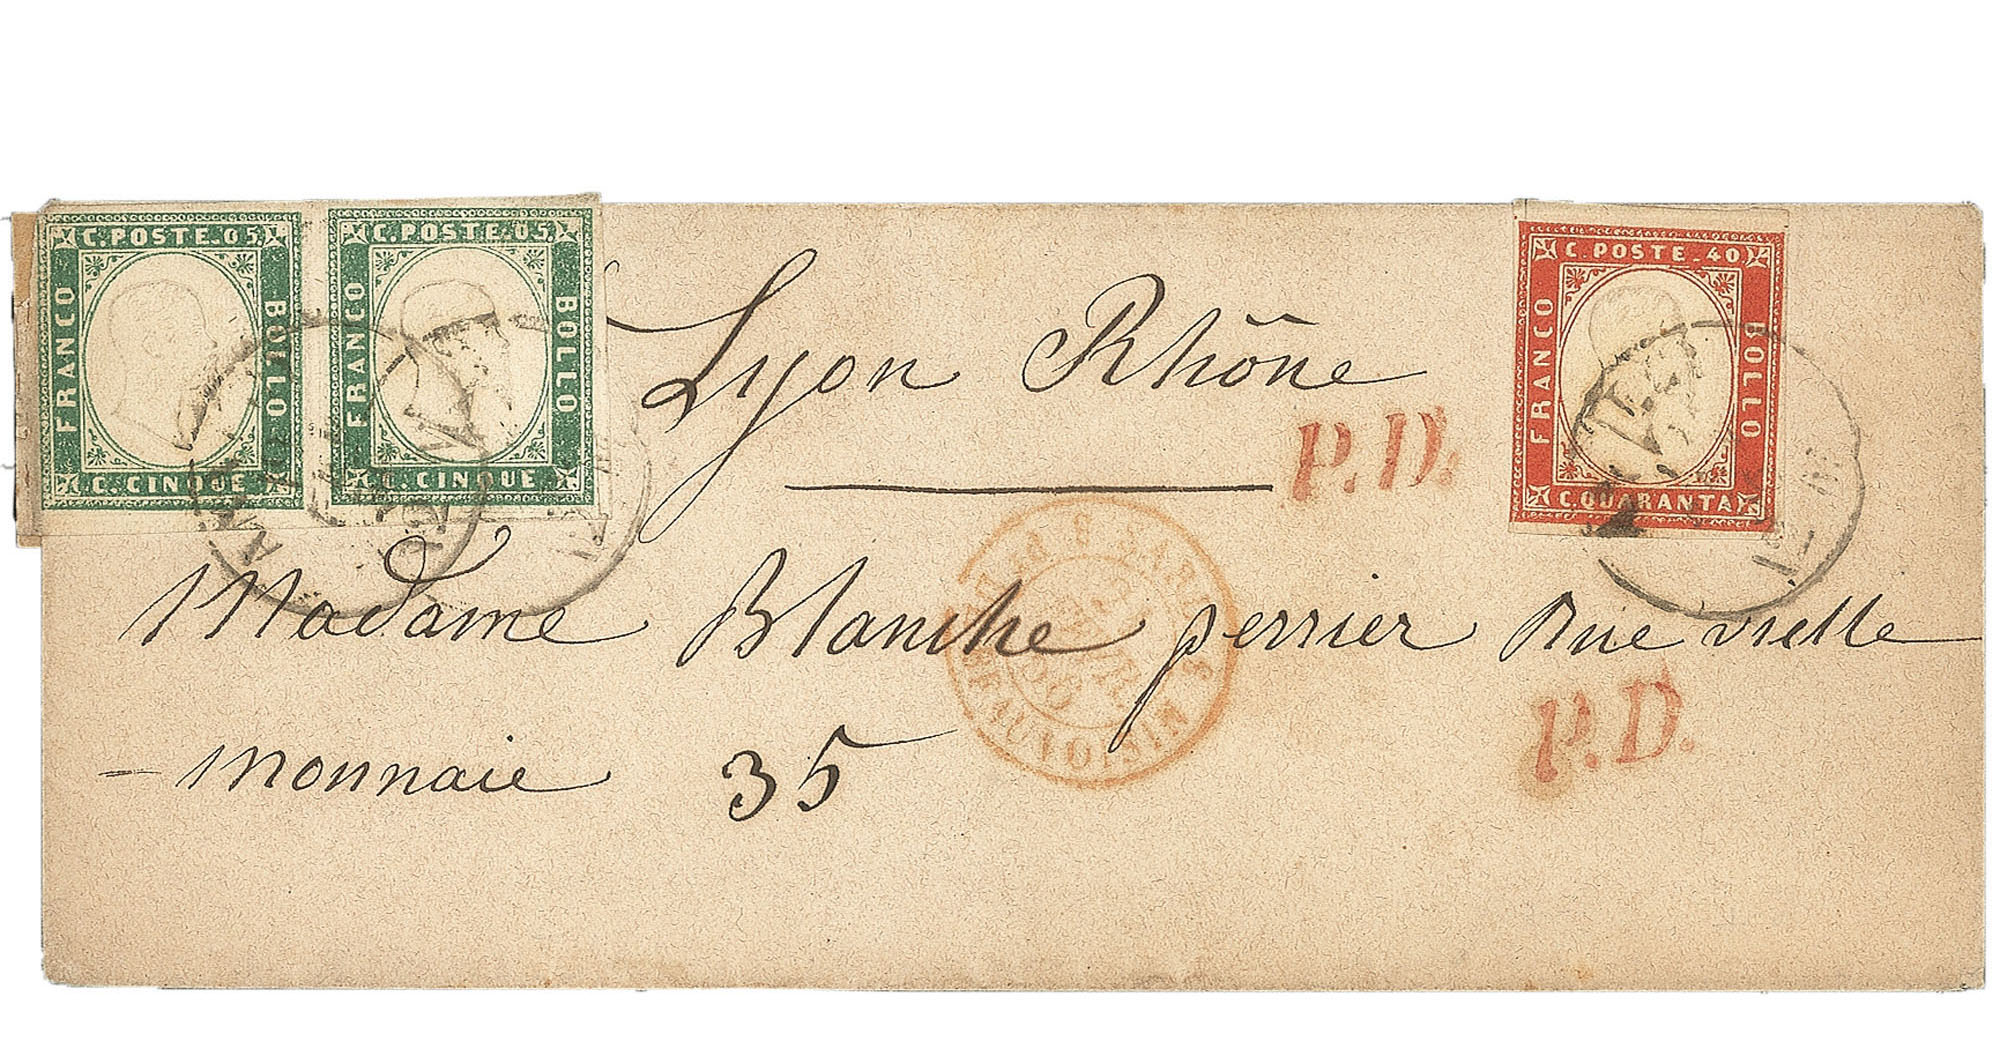 C. POSTE. 05.
FRANCO
BOLLO
C. CINQUE
C. POSTE. 05.
FRANCO
BOLLO
C. CINQUE
C. POSTE. 40
FRANCO
BOLLO
C. QUARANTA
Lyon Rhône
P.D.
Madame Blanche perrier Rue vielle
P.D.
- monnaie 35